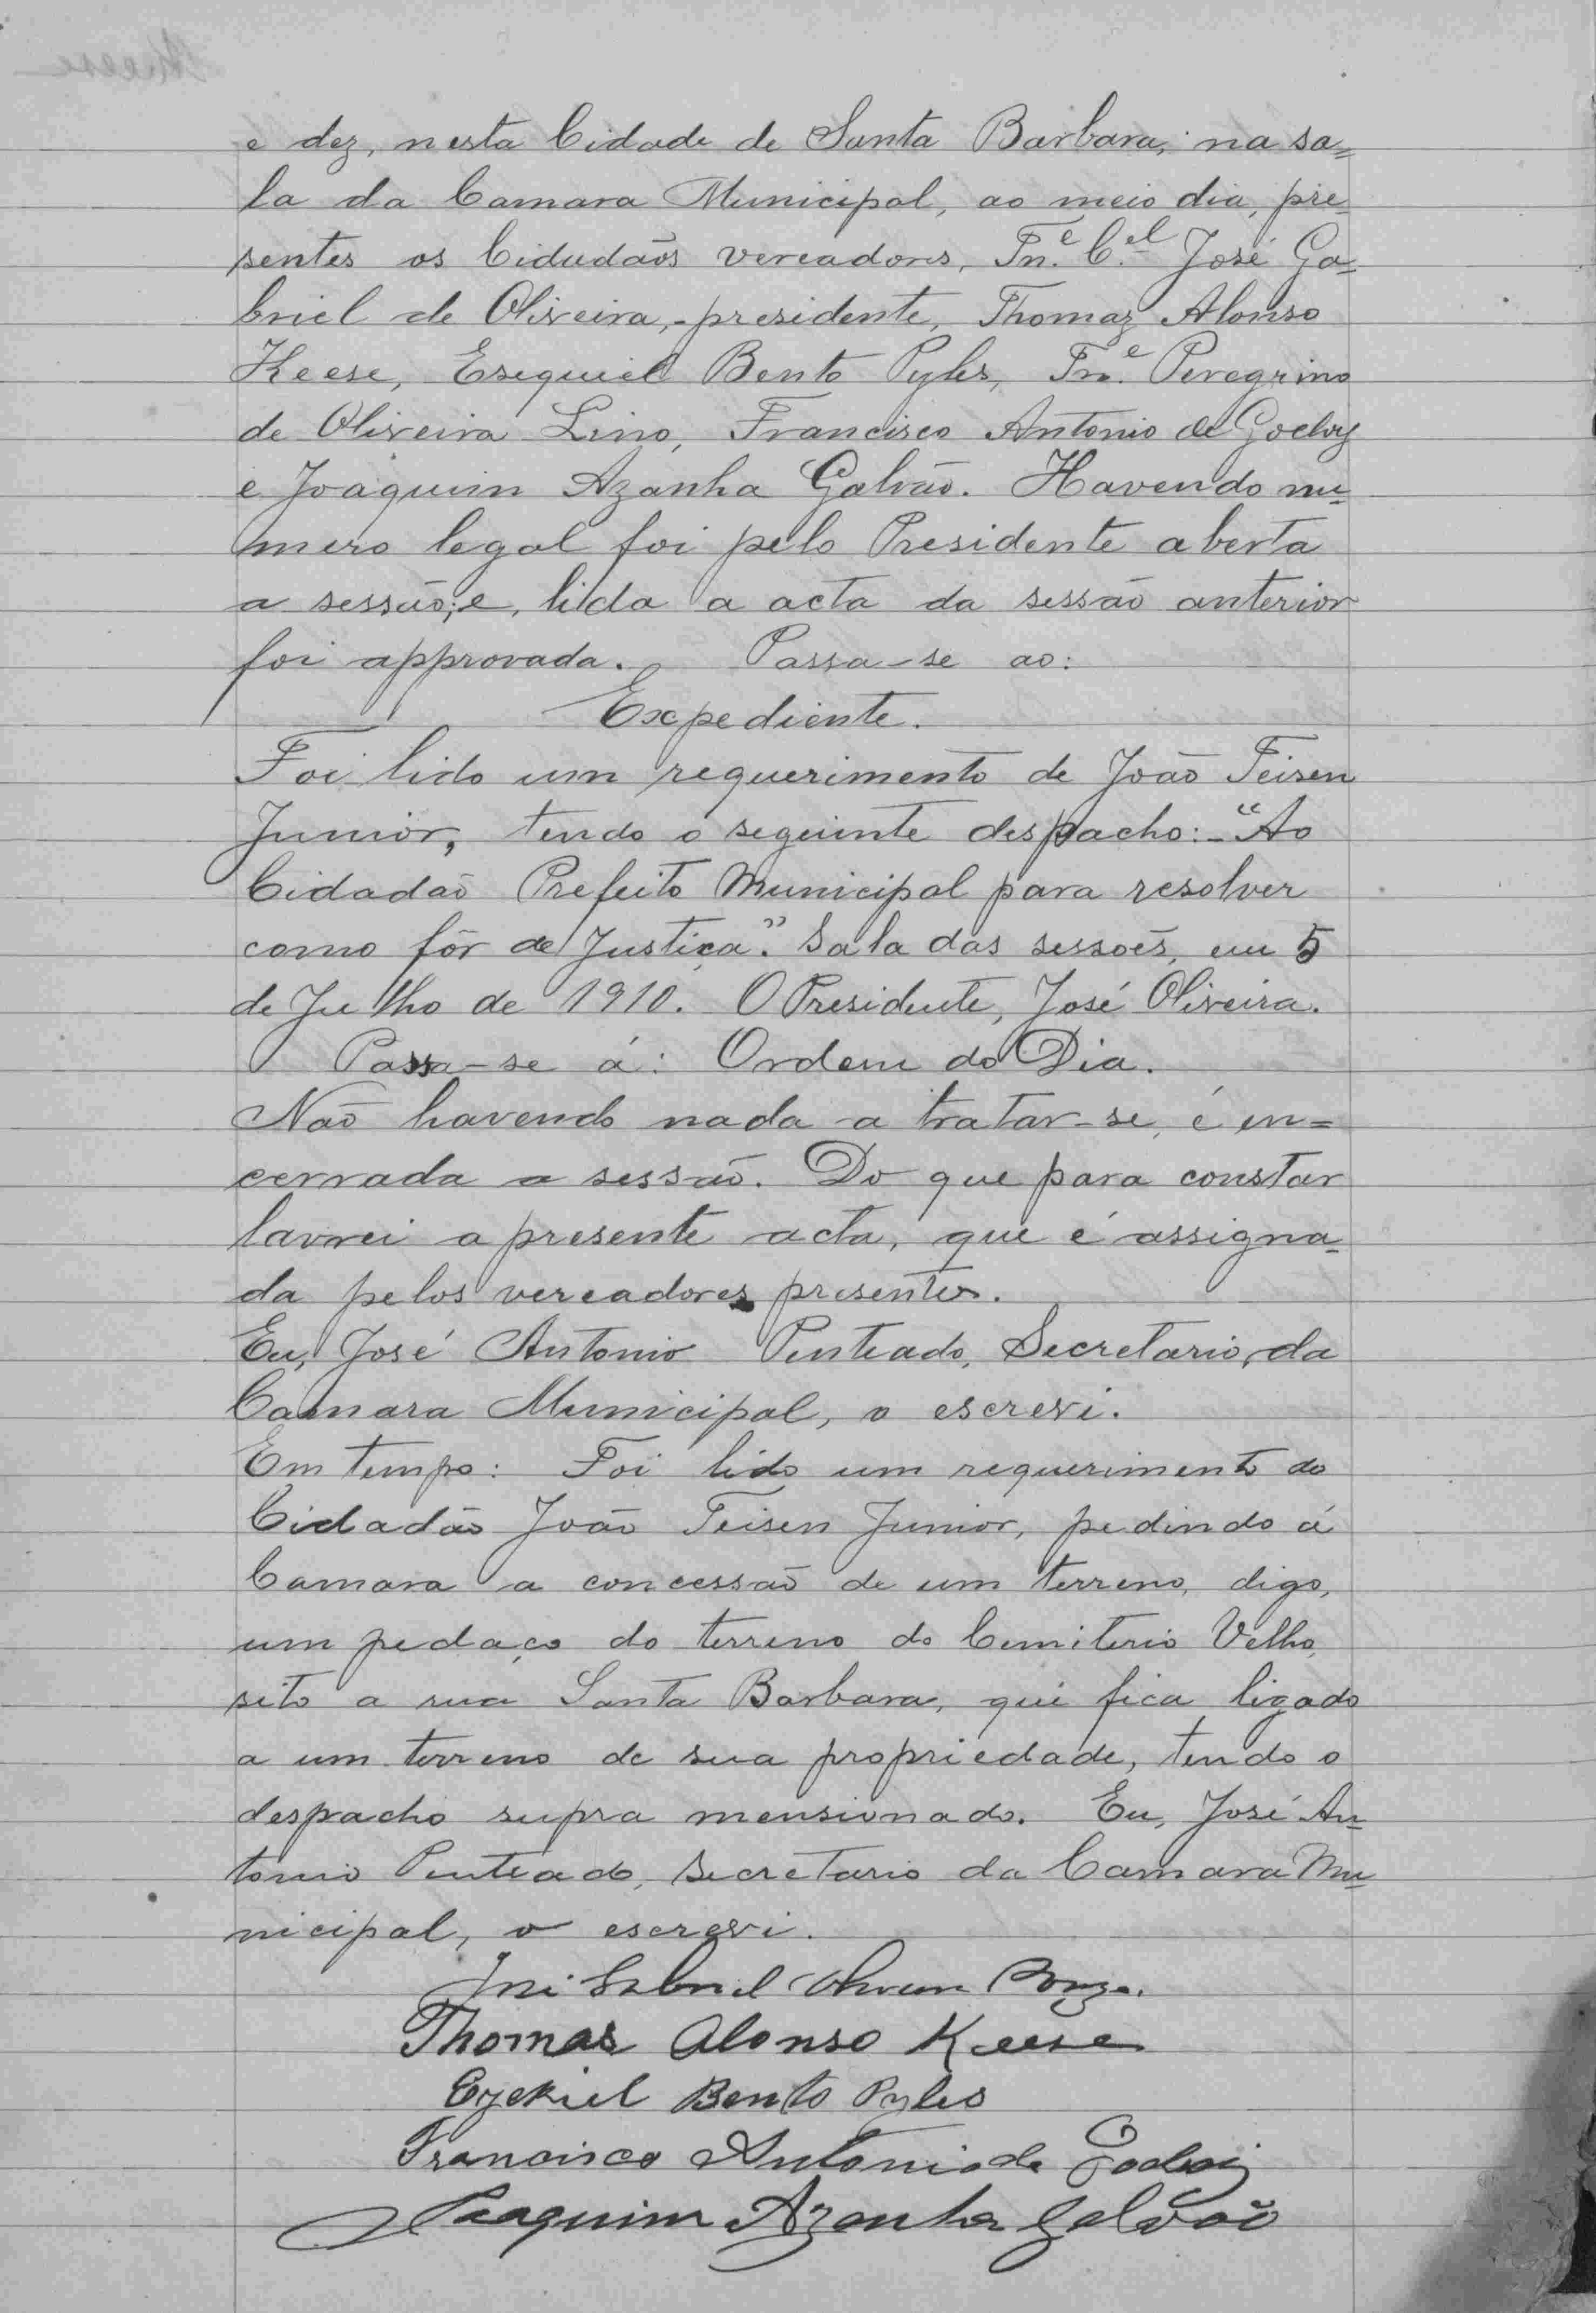 e dez, nesta Cidade de Santa Barbara, na sa=
la da Camara Municipal, ao meio dia, pre-
sentes os Cidadãos vereadores, Tn.e C.el José Ga-
briel de Oliveira,-presidente, Thomaz Alonso
Keese, Esequiel Bento Pyles, Tn.e Peregrino
de Oliveira Lino, Francisco Antonio de Godoy
e Joaquim Azanha Galvão. Havendo nu-
mero legal foi pelo Presidente aberta
a sessão; e, lida a acta da sessão anterior
foi approvada. Passa-se ao:
Expediente.
Foi lido um requerimento de João Teisen
Junior, tendo o seguinte despacho:-"Ao
Cidadão Prefeito Municipal para resolver
como fôr de Justiça". Sala das sessões, em 5
de Julho de 1910. O Presidente, José Oliveira.
Passa-se á: Ordem do Dia.
Não havendo nada a tratar-se, é en=
cerrada a sessão. Do que para constar
lavrei a presente acta, que é assigna-
da pelos vereadores presentes.
Eu, José Antonio Penteado, Secretario, da
Camara Municipal, o escrevi.
Em tempo: Foi lido um requerimento do
Cidadão João Teisen Junior, pedindo á
Camara a concessão de um terreno, digo,
um pedaço do terreno do Cemiterio Velho,
sito a rua Santa Barbara, que fica ligado
a um terreno de sua propriedade, tendo o
despacho supra mensionado. Eu, José An-
tonio Penteado, Secretario da Camara Mu-
nicipal, o escrevi.
José Gabriel Oliveira
Thomas Alonso Keese
Ezekiel Bento Pyles
Francisco Antonio de Godoi
Joaquim Azanha Galvão